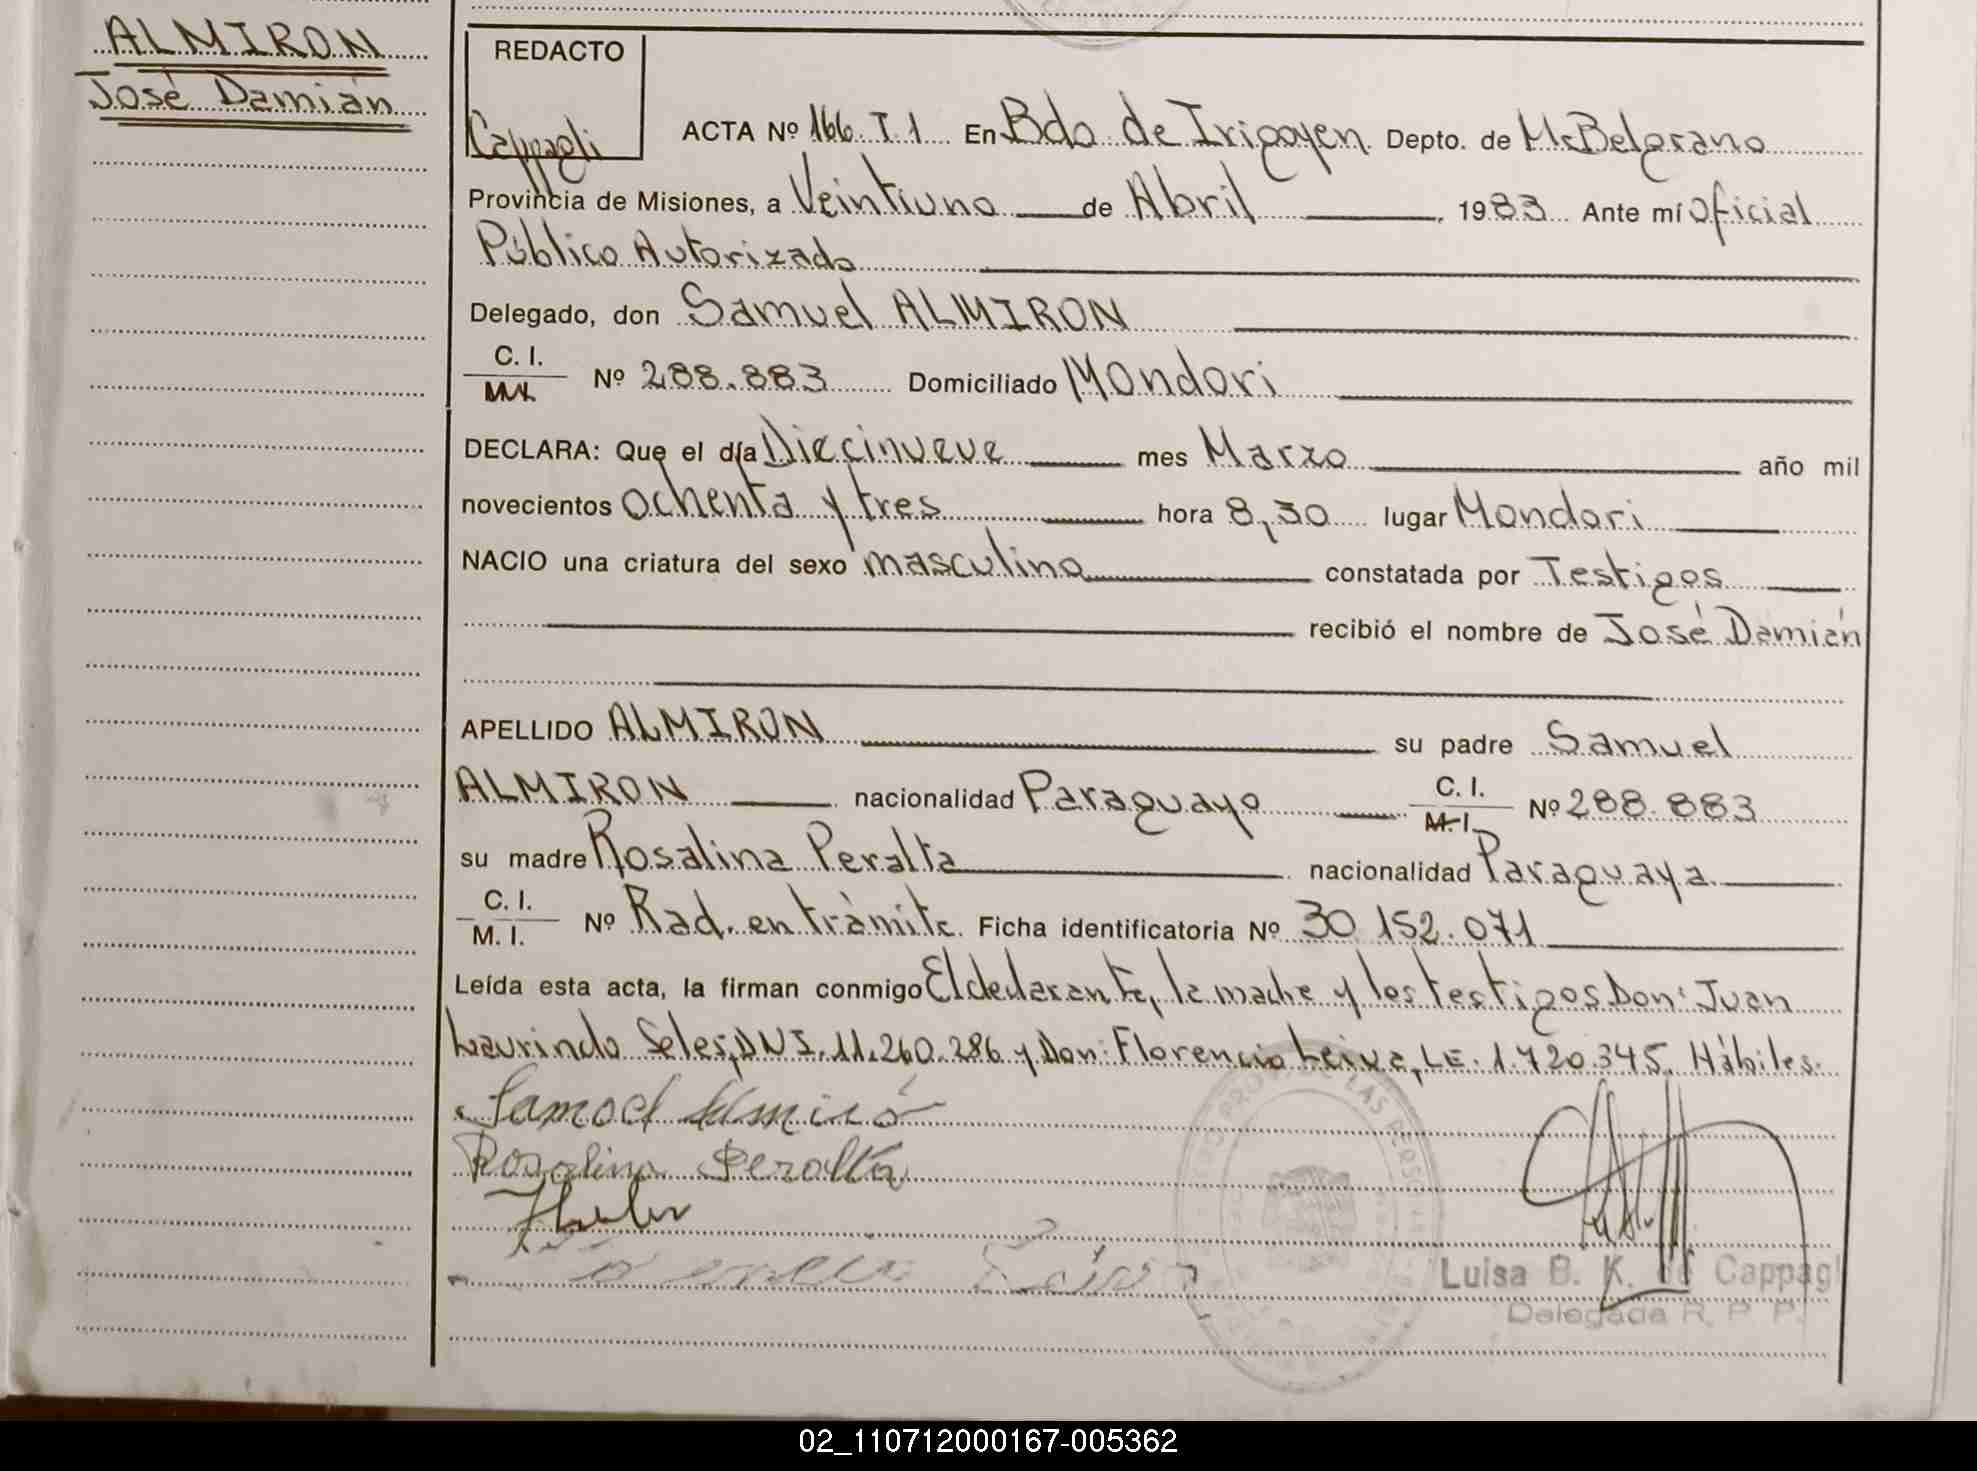 ALMIRON
José Damián
REDACTO
Cappagli
ACTA Nº 166. T.1 En Bdo de Irigoyen. Depto. de M. Belgrano
Provincia de Misiones, a Veintiuno de Abril, 1983 Ante mí Oficial
Público Autorizado
Delegado, don Samuel ALMIRON
C. I. Nº 288.883 Domiciliado Mondori
DECLARA: Que el día Diecinueve mes Marzo año mil
novecientos ochenta y tres hora 8,30 lugar Mondori
NACIO una criatura del sexo masculino constatada por Testigos
recibió el nombre de José Damián
APELLIDO ALMIRON su padre Samuel
ALMIRON nacionalidad Paraguayo C. I. M. I. Nº 288.883
su madre Rosalina Peralta nacionalidad Paraguaya
C. I. M. I. Nº Rad. en tràmite. Ficha identificatoria Nº 30.152.071
Leída esta acta, la firman conmigo El declarante, la madre y los testigos Don: Juan
Laurindo Seles, DNI. 11.260.286 y Don: Florencio Leiva, LE. 1.720.345. Hábiles.
Rosalina Peralta
Luisa B. K. de Cappagl
Delegada R. P. P.
02_110712000167-005362